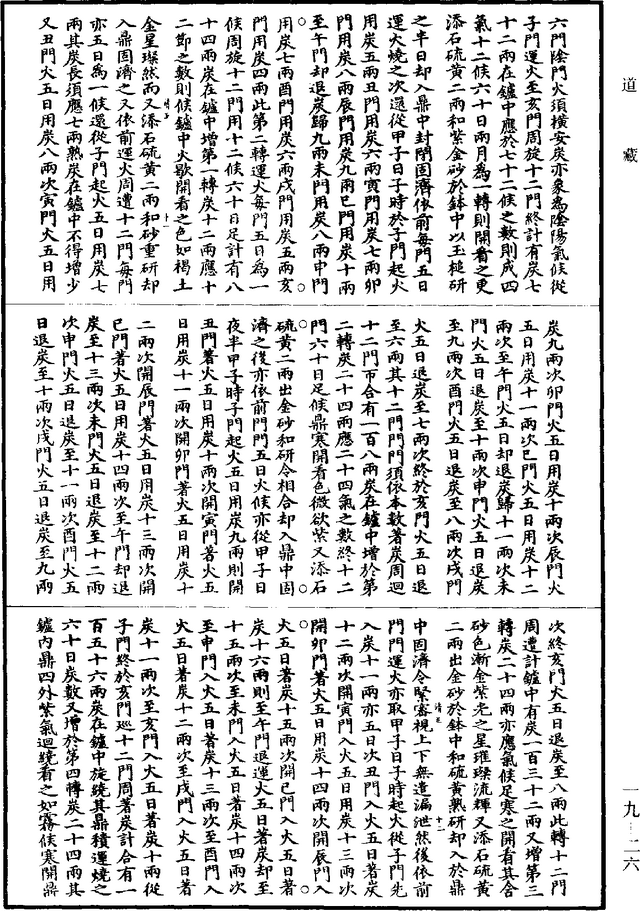 六門陰門火須橫安炭亦象為陰陽氣候從
子門運火至亥門周旋十二門終計有炭七
十二兩在鑪中應於七十二候之數則成四
氣十二候六十日兩月為一轉則開看之更
添石硫黃二兩和紫金砂於鉢中以玉槌研
之半日却入鼎中封閉固濟依前每門五日
運火燒之次還從甲子日子時於子門起火
用炭五兩丑門用炭六兩寅門用炭七兩卯
門用炭八兩辰門用炭九兩巳門用炭十兩
至午門却退炭歸九兩未門用炭八兩申門
用炭七兩酉門用炭六兩戌門用炭五兩亥
門用炭四兩此第二轉運火每門五日為一
候周旋十二門用十二候六十日足計有八
十四兩炭在鑪中增第一轉炭十二兩應十
二節之數則候鑪中火歇開看之色如褐土
金星璨然而又添石硫黃二兩和砂重研却
入鼎固濟之又依前運火周遭十二門每門
亦五日為一候還從子門起火五日用炭七
兩其炭長須應七兩熟炭在鑪中不得增少
又丑門火五日用炭八兩次寅門火五日用
炭九兩次卯門火五日用炭十兩次辰門火
五日用炭十一兩次巳門火五日用炭十二
兩次至午門火五日却退炭歸十一兩次未
門火五日退炭至十兩次申門火五日退炭
至九兩次酉門火五日退炭至八兩次戌門
火五日退炭至七兩次終於亥門火五日退
至六兩其十二門門門須依本數著炭周迴
十二門帀合有一百八兩炭在鑪中增於第
二轉炭二十四兩應二十四氣之數終十二
門六十日足候鼎寒開看色微欲紫又添石
硫黃二兩出金砂和研令相合却入鼎中固
濟之後亦依前門門五日火候亦從甲子日
夜半甲子時子門起火五日用炭九兩則開
丑門著火五日用炭十兩次開寅門著火五
日用炭十一兩次開卯門著火五日用炭十
二兩次開辰門著火五日用炭十三兩次開
巳門著火五日用炭十四兩次至午門却退
炭至十三兩次未門火五日退炭至十二兩
次申門火五日退炭至十一兩次酉門火五
日退炭至十兩次戌門火五日退炭至九兩
次終亥門火五日退炭至八兩此轉十二門
周遭計鑪中有炭一百三十二兩又增第三
轉炭二十四兩亦應氣候足寒之開看其含
砂色漸金紫光之星璀璨流輝又添石硫黃
二兩出金砂於鉢中和硫黃熟研却入於鼎
中固濟令緊密視上下無遣漏泄然後依前
門門運火亦取甲子日子時起火從子門先
入炭十一兩亦五日次丑門入火五日著炭
十二兩次開寅門入火五日用炭十三兩次
開卯門著火五日用炭十四兩次開辰門入
火五日著炭十五兩次開巳門入火五日著
炭十六兩則至午門退運火五日著炭却至
十五兩次至未門入火五日著炭十四兩次
至申門入火五日著炭十三兩次至酉門入
火五日著炭十二兩次至戌門入火五日著
炭十一兩次至亥門入火五日著炭十兩從
子門終於亥門巡十二門周著炭計合有一
百五十六兩炭在鑪中旋繞其鼎積運燒之
六十日炭數又增於第四轉炭二十四兩其
鑪內鼎四外紫氣迴繞看之如霧候寒開鼎
道藏
一九—二六